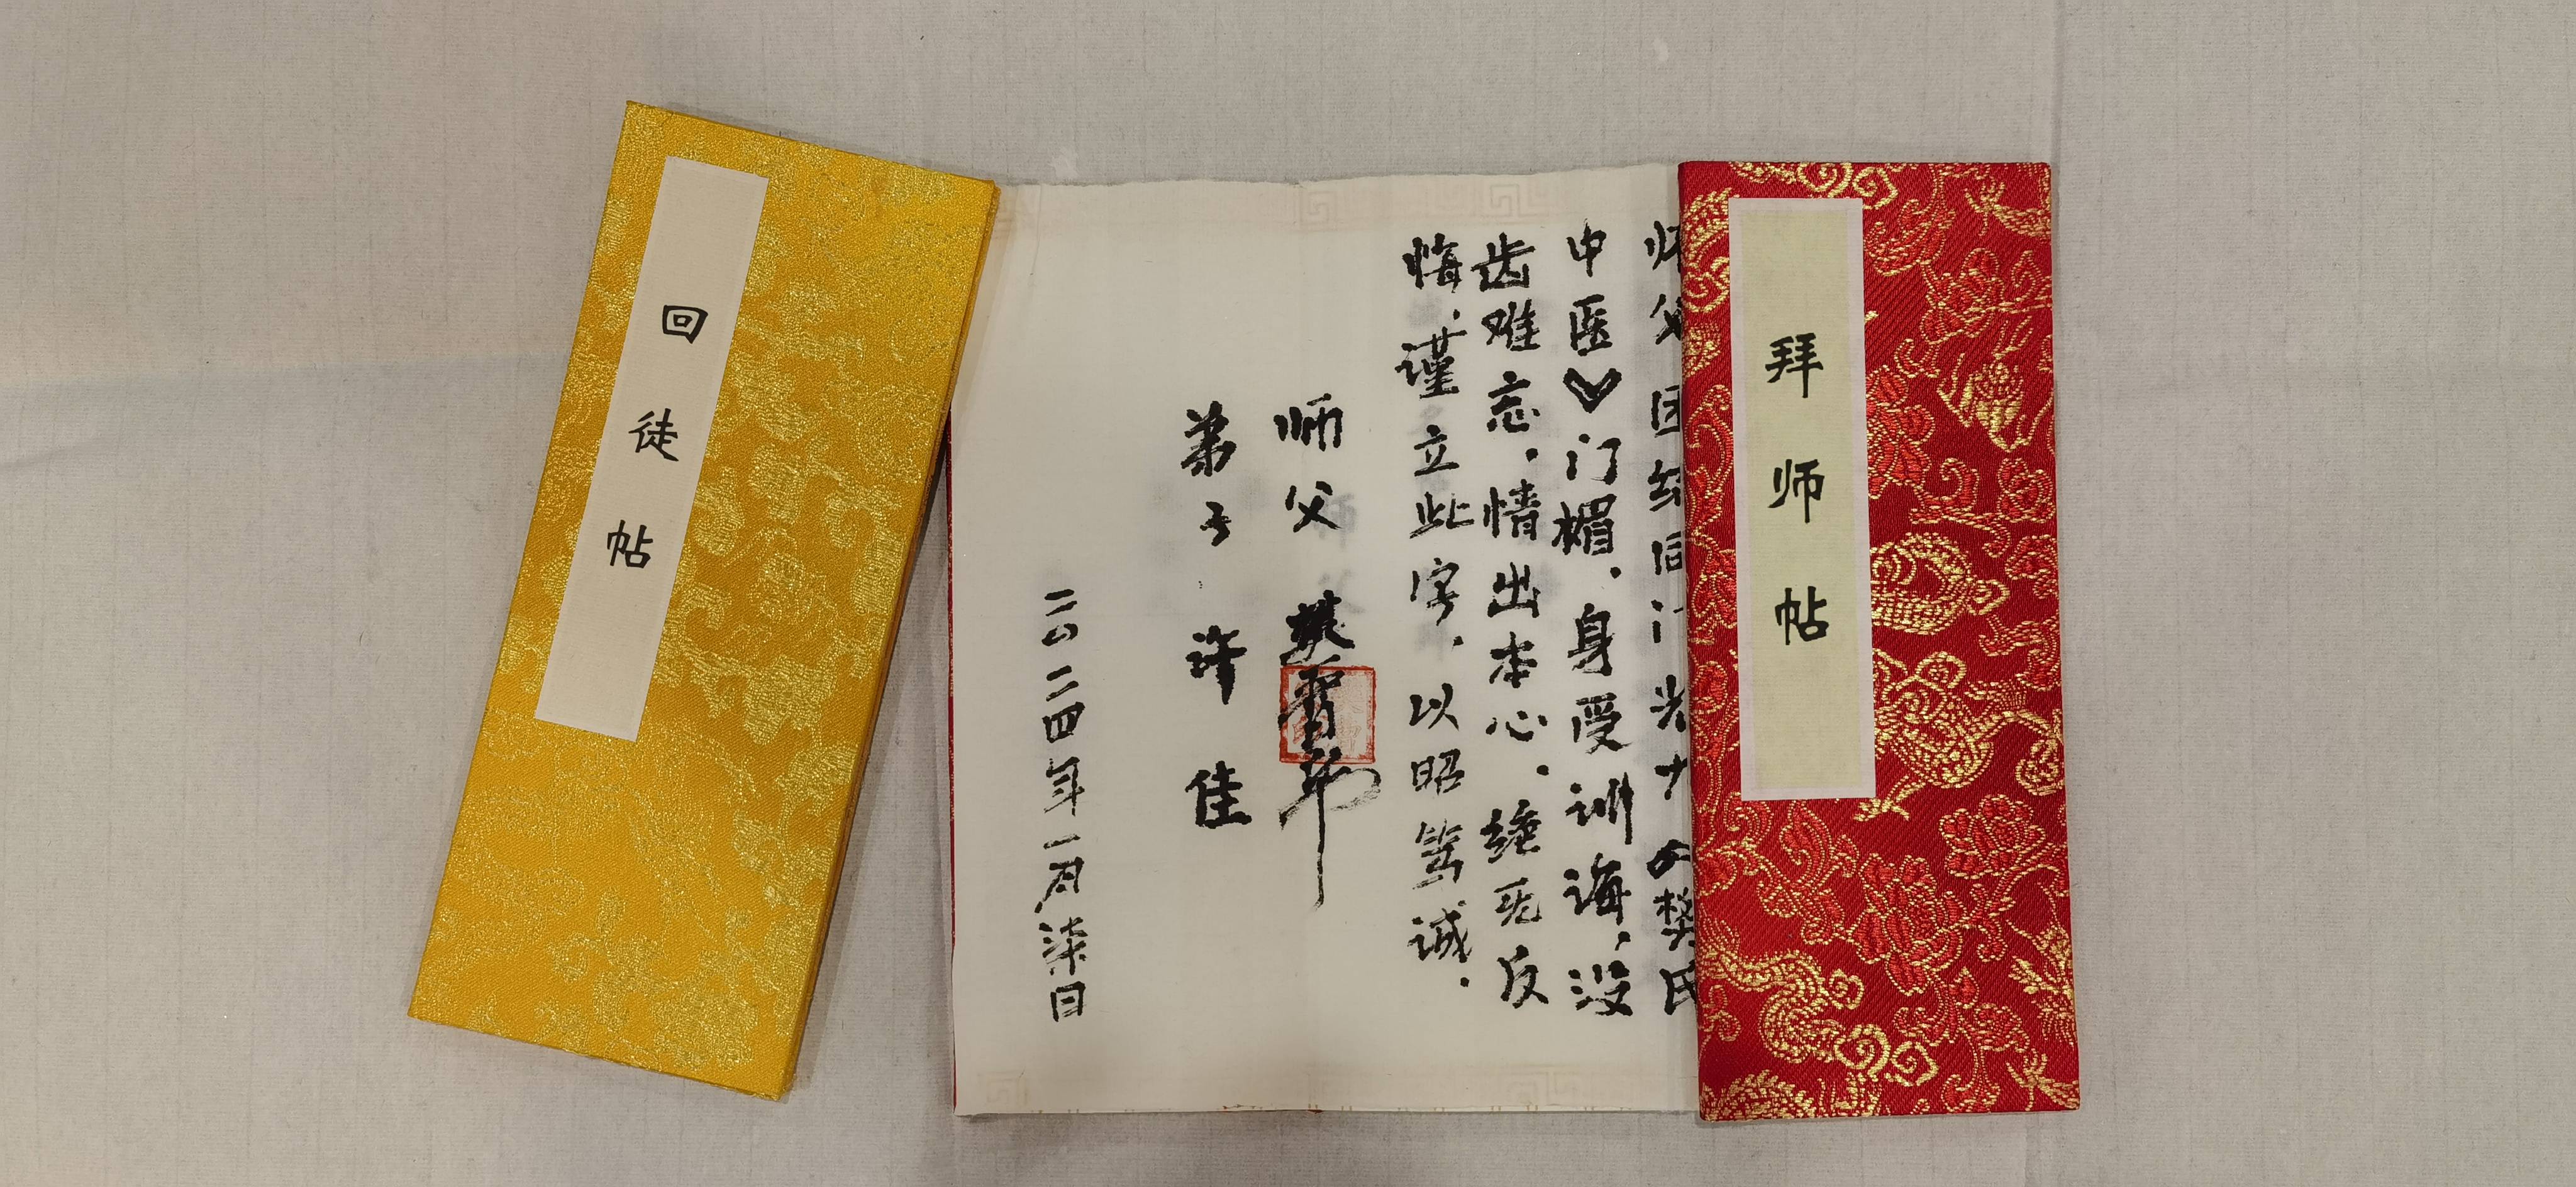 拜师帖
师父团结同门光大樊氏
中医门楣.身受训诲,没
齿难忘.情出本心.绝无反
悔.谨立此字.以昭笃诚.
师父
弟子 许佳
二〇二四年一月柒日
回徒帖